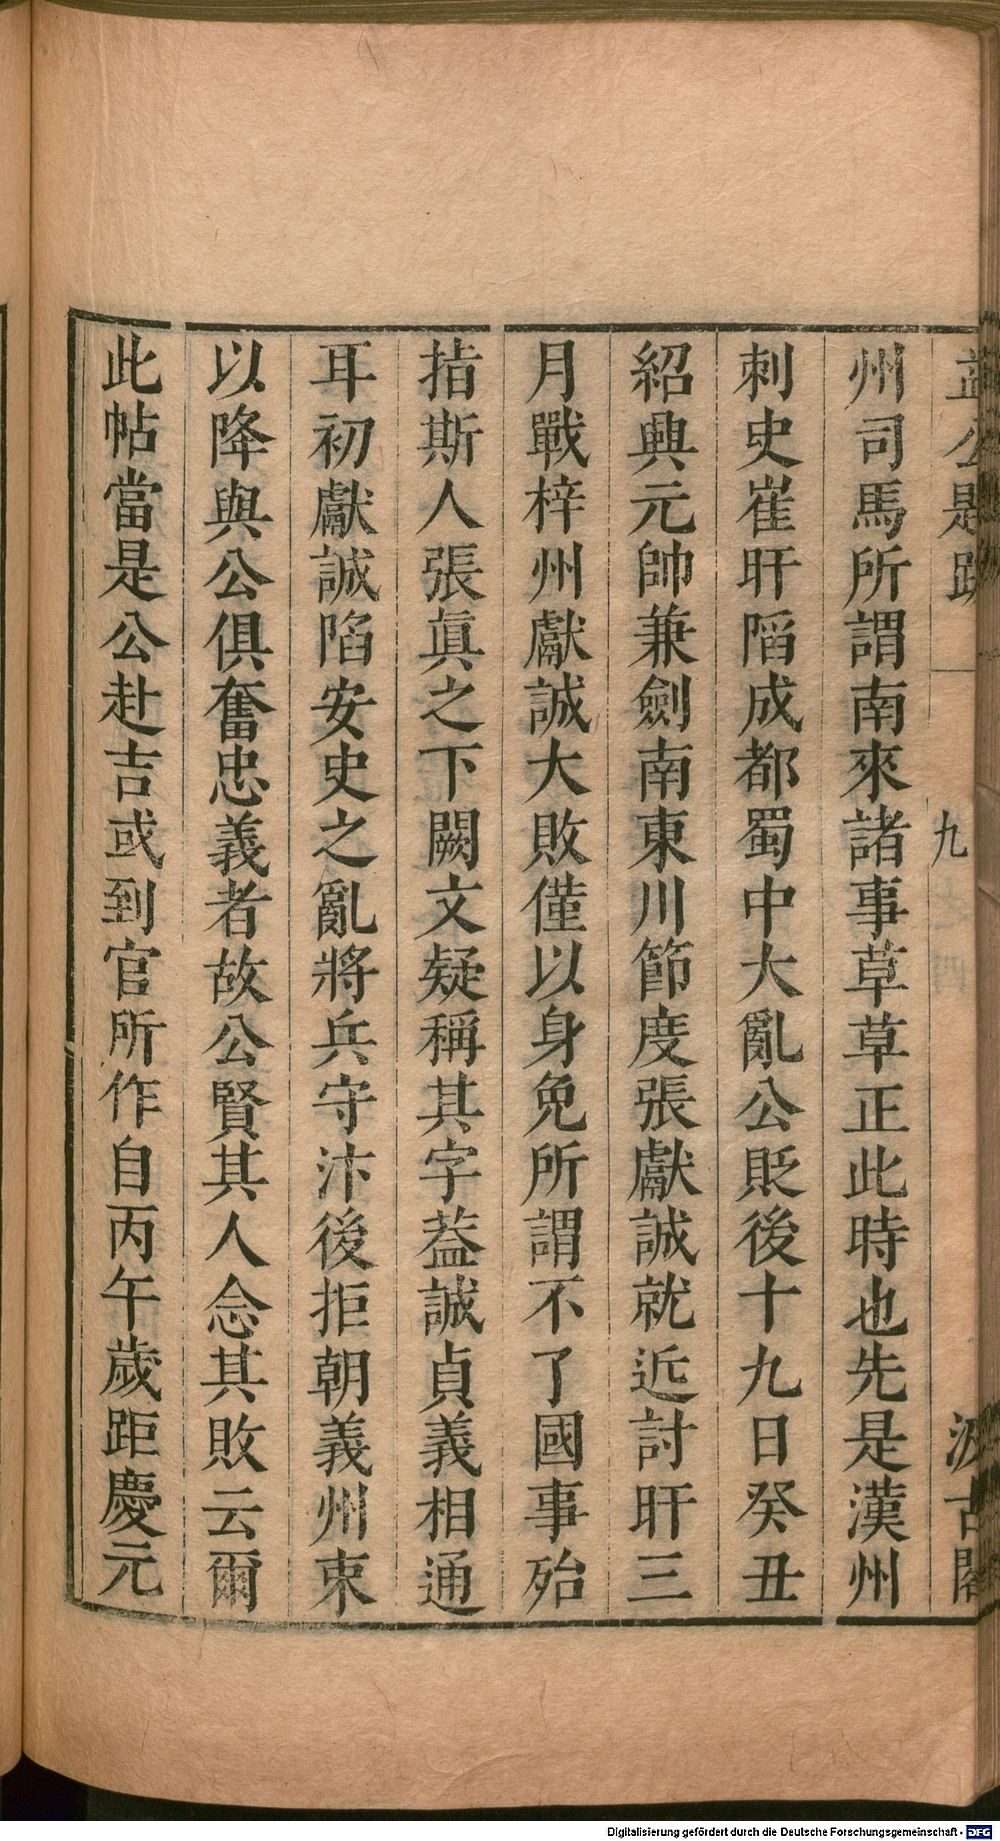 益公題跋 九 汲古閣
州司馬所謂南來諸事草草正此時也先是漢州
刺史崔旰䧟成都蜀中大亂公貶後十九日癸丑
紹興元帥兼劍南東川節度張獻誠就近討旰三
月戰梓州獻誠大敗僅以身免所謂不了國事殆
指斯人張眞之下闕文疑稱其字葢誠貞義相通
耳初獻誠陷安史之亂將兵守汴後拒朝義州束
以降與公俱奮忠義者故公賢其人念其敗云爾
此帖當是公赴吉或到官所作自丙午歲距慶元
Digitalisierung gefördert durch die Deutsche Forschungsgemeinschaft - DFG